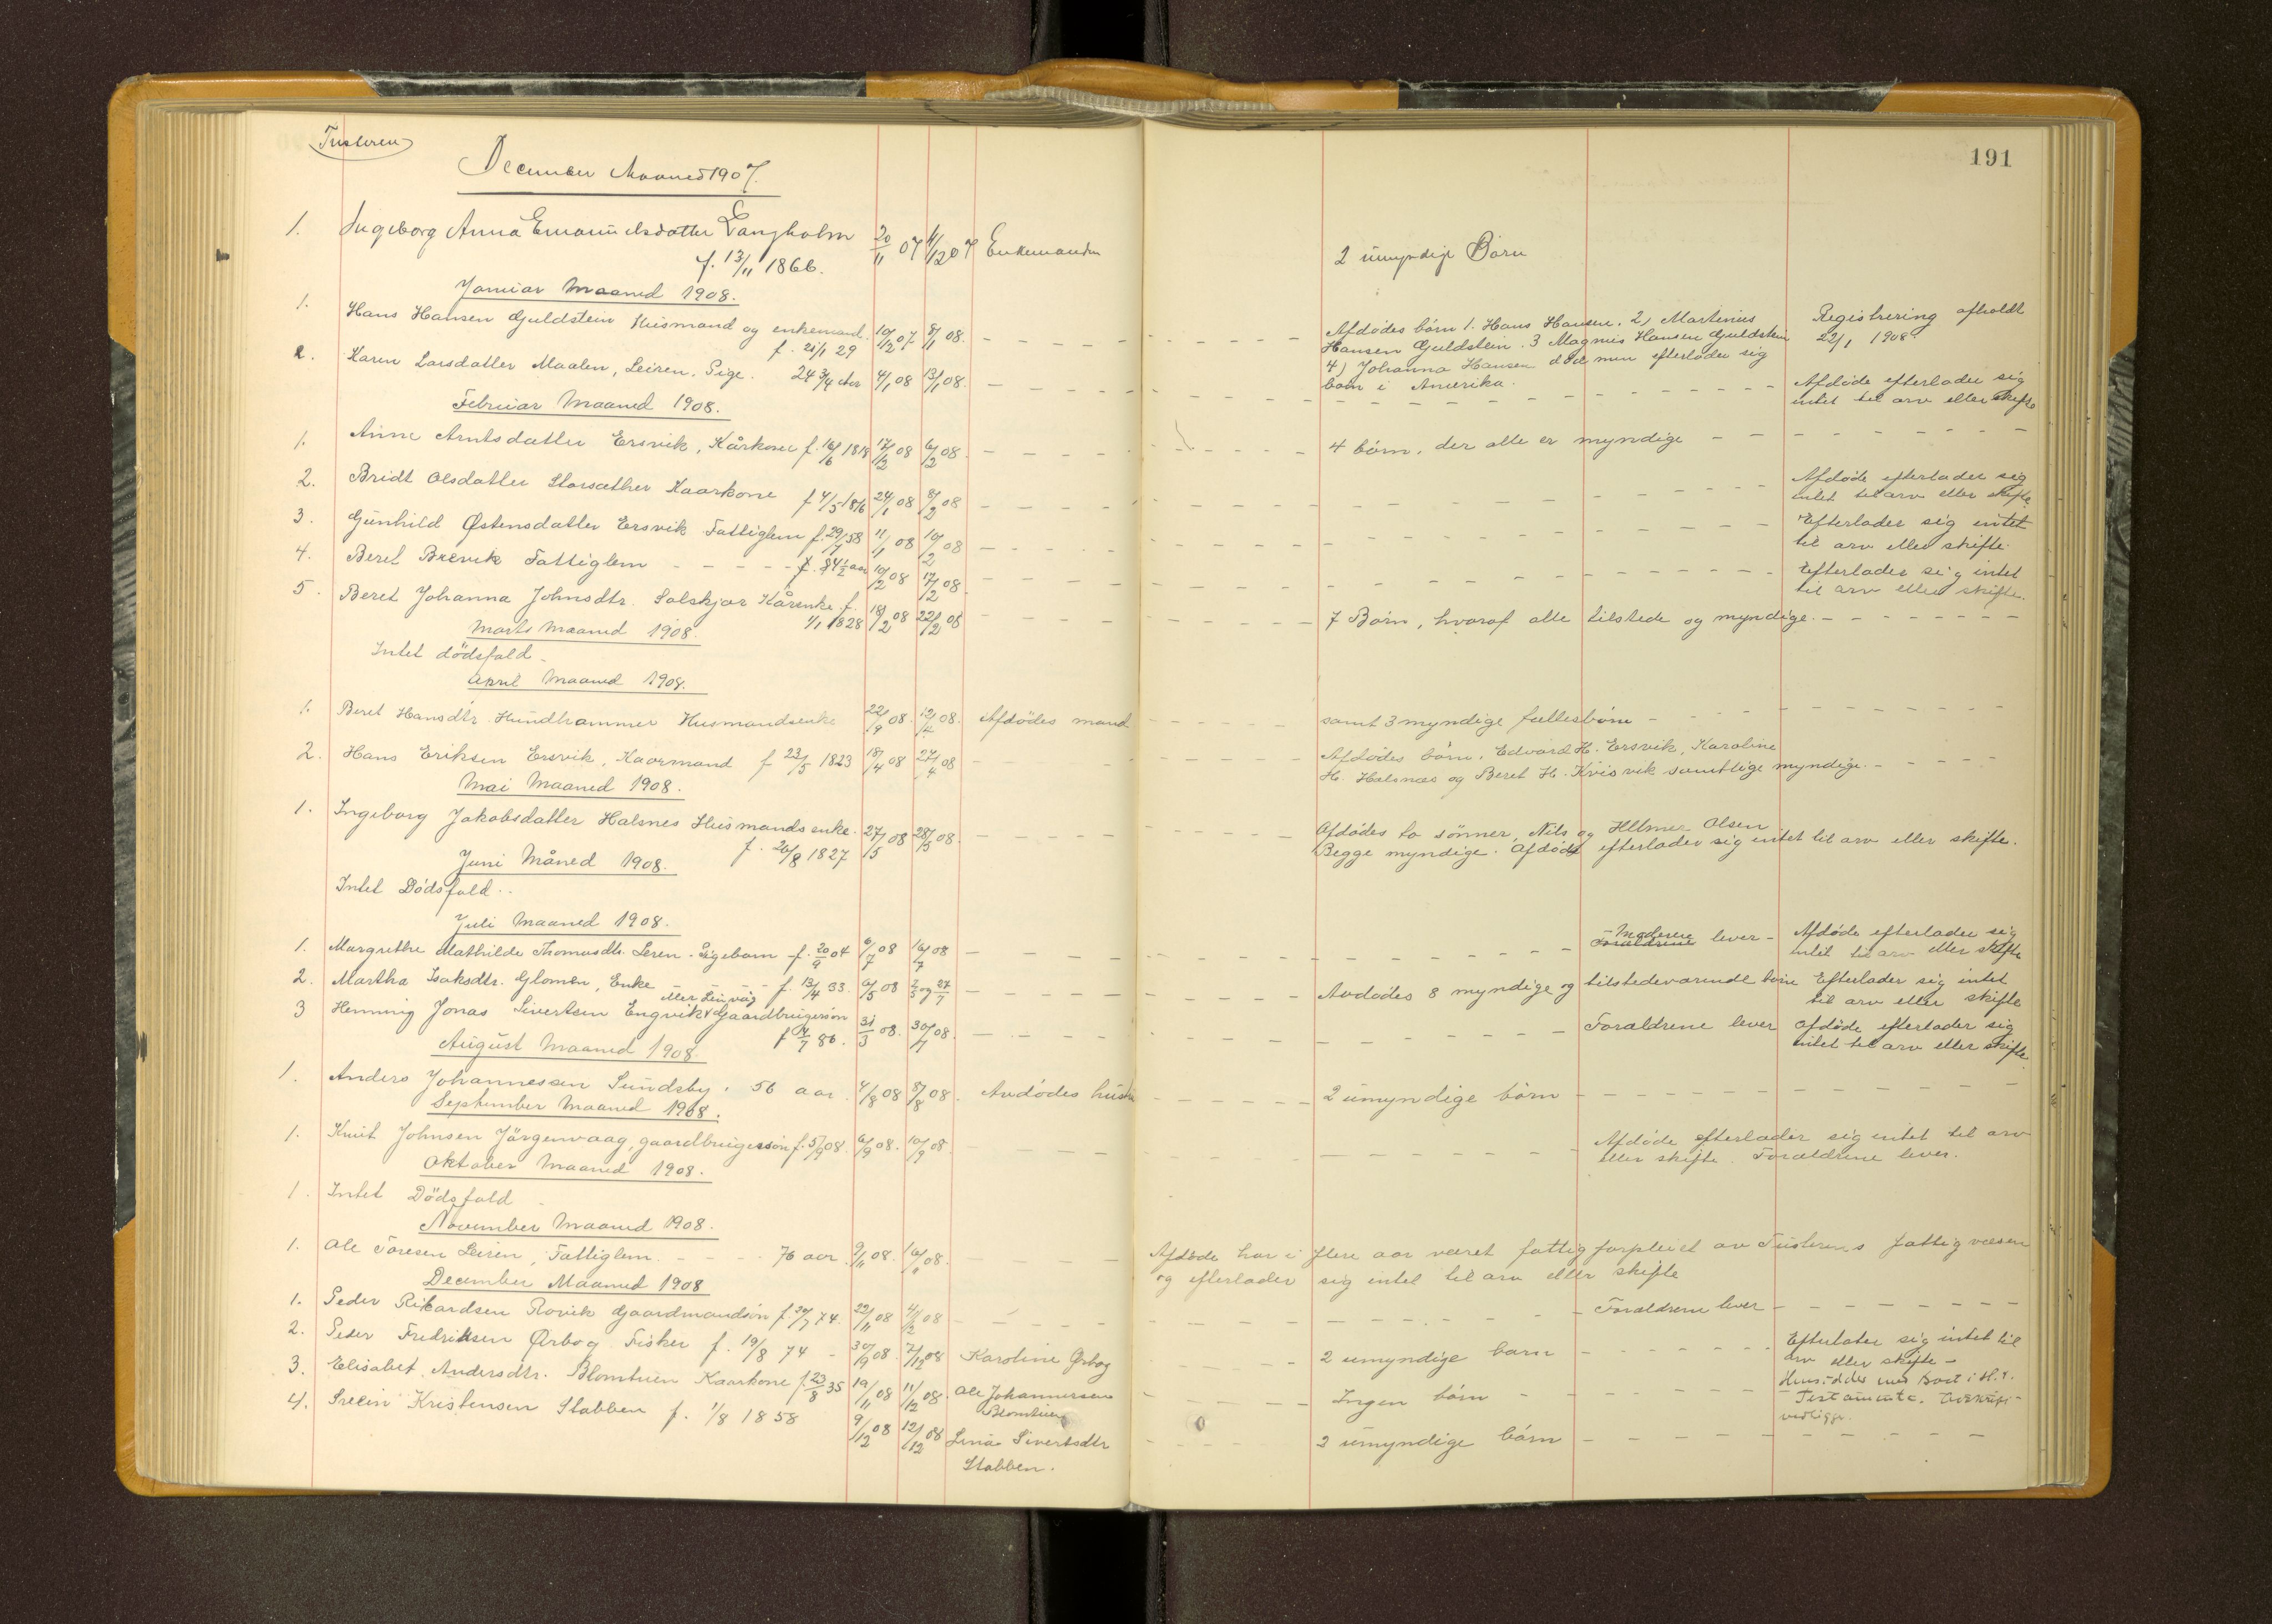 Tusteren
191
December Maaned 1907.
1. Ingeborg Anna Emanuelsdatter Langholm 20/11 07 4/12 07 Enkemanden 2 umyndige Børn
f. 13/11 1866.
Januar Maaned 1908.
1. Hans Hansen Guldstein Husmand og enkemand. 10/12 07 8/1 08. Afdødes børn 1. Hans Hansen. 2, Martinius Registrering afholdt
f. 21/1 29 Hansen Guldstein. 3 Magnus Hansen Guldstein 22/1 1908.
4) Johanna Hansen død men efterlader sig
barn i Amerika.
2. Karen Larsdatter Maalen, Leiren. Pige. 24 3/4 Aar 4/1 08 13/1 08. Afdøde efterlader sig
intet til arv eller skifte
Februar Maaned 1908.
1. Anne Arntsdatter Ersvik, Kårkone f. 16/6 1818 17/12 08 6/2 08. 4 børn, der alle er myndige
2. Bridt Olsdatter Storsæther Kaarkone f 4/5 1816 24/1 08 8/2 08 Afdøde efterlader sig
intet til arv eller skifte
3. Gunhild Østensdatter Ersvik Fattiglem f. 29/4 58 11/1 08 10/2 08 Efterlader sig intet
til arv eller skifte.
4. Beret Brevik Fattiglem 84 1/2 aar 10/2 08 17/2 08. Efterlader sig intet
til arv eller skifte.
5. Beret Johanna Johnsdtr. Solskjær Kårenke f. 18/2 08 22/2 08 7 Børn, hvoraf alle tilstede og myndige.
1/1 1828
Marts Maaned 1908.
Intet dödsfald
April Maaned 1908.
1. Beret Hansdtr. Hundhammer Husmandsenke 22/9 08. 12/4 08. Afdödes mand samt 3 myndige fællesbørn
2. Hans Eriksen Ersvik, Kaarmand f 23/5 1823 18/4 08 27/4 08 Afdødes børn, Edvard H. Ersvik, Karoline
H. Halsnæs og Beret H. Kvisvik samtlige myndige.
Mai Maaned 1908.
1. Ingeborg Jakobsdatter Halsnes Husmandsenke. 27/5 08 28/5 08. Afdødes to sønner, Nils og Hilmer Olsen
f. 20/8 1827 Begge myndige. Afdøde efterlader sig intet til arv eller skifte.
Juni Måned 1908.
Intet Dödsfald..
Juli Maaned 1908.
1. Margrethe Mathilde Thomasdtr. Leren. Pigebarn f. 20/9 04 6/7 08 16/7 08 Foraldrene Moderen lever - Afdøde efterlader sig
intet til arv eller skifte
2. Martha Isaksdtr. Glomen, Enke f. 13/4 33. 6/5 08 2/5 og 27/7 Avdødes 8 myndige og tilstedeværende børn Efterlader sig intet
til arv eller skifte
eller Leirvåg
3 Henning Jonas Sivertsen Engvik Gaardbrugersøn 31/3 08. 30/7 08. Foraldrene lever Afdøde efterlader sig
f 14/7 86. intet til arv eller skifte
August Maaned 1908.
1. Anders Johannessen Sundsby, 56 aar. 4/8 08 8/8 08. Avdødes hustru 2 umyndige børn
September Maaned 1908.
1. Knut Johnsen Jørgenvaag, gaardbrugersøn f. 5/9 08. 6/9 08. 10/9 08. Afdøde efterlader sig intet til arv
eller skifte. Foraldrene lever.
Oktober Maaned 1908.
1. Intet Dödsfald
November Maaned 1908.
1. Ole Toresen Leiren, Fattiglem. 76 aar 9/11 08. 16/11 08. Afdøde har i flere aar været fattigforpleiet av Tusterens Fattigvæsen
og efterlader sig intet til arv eller skifte
December Maaned 1908
1. Peder Rikardsen Rovik Gaardmandsøn f. 30/7 74. 22/11 08 4/12 08 Foraldrene lever
2. Peder Fredriksen Ørbog Fisker f. 19/8 74 30/9 08. 7/12 08 Karoline Ørbog 2 umyndige barn Efterlater sig intet til
arv eller skifte -
3. Elisabet Andersdtr. Blomtuen Kaarkone f. 23/8 35 19/11 08 11/12 08. Ole Johannessen Ingen børn
Blomtuen
Testamente.
vedligger.
4. Kristensen Stabben f. 1/8 1858 9/12 08 12/12 08 Lina Sivertsdtr 3 umyndige børn
Stabben.